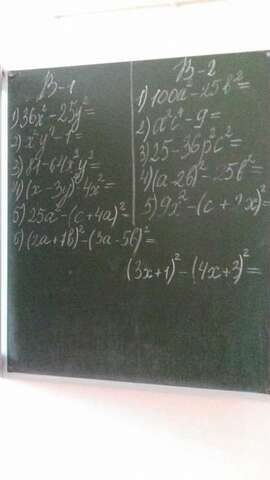 В-1
1) 36x² - 25y² =
2) x²y² - 1 =
3) 81 - 64x²y² =
4) (x - 3y)² - 4x² =
5) 25a² - (c + 4a)² =
6) (2a + 7b)² - (3a - 5b)² =
В-2
1) 100a² - 25b² =
2) a²c² - 9 =
3) 25 - 36p²c² =
4) (a - 2b)² - 25b² =
5) 9x² - (c + x)² =
(3x + 1)² - (4x + 3)² =